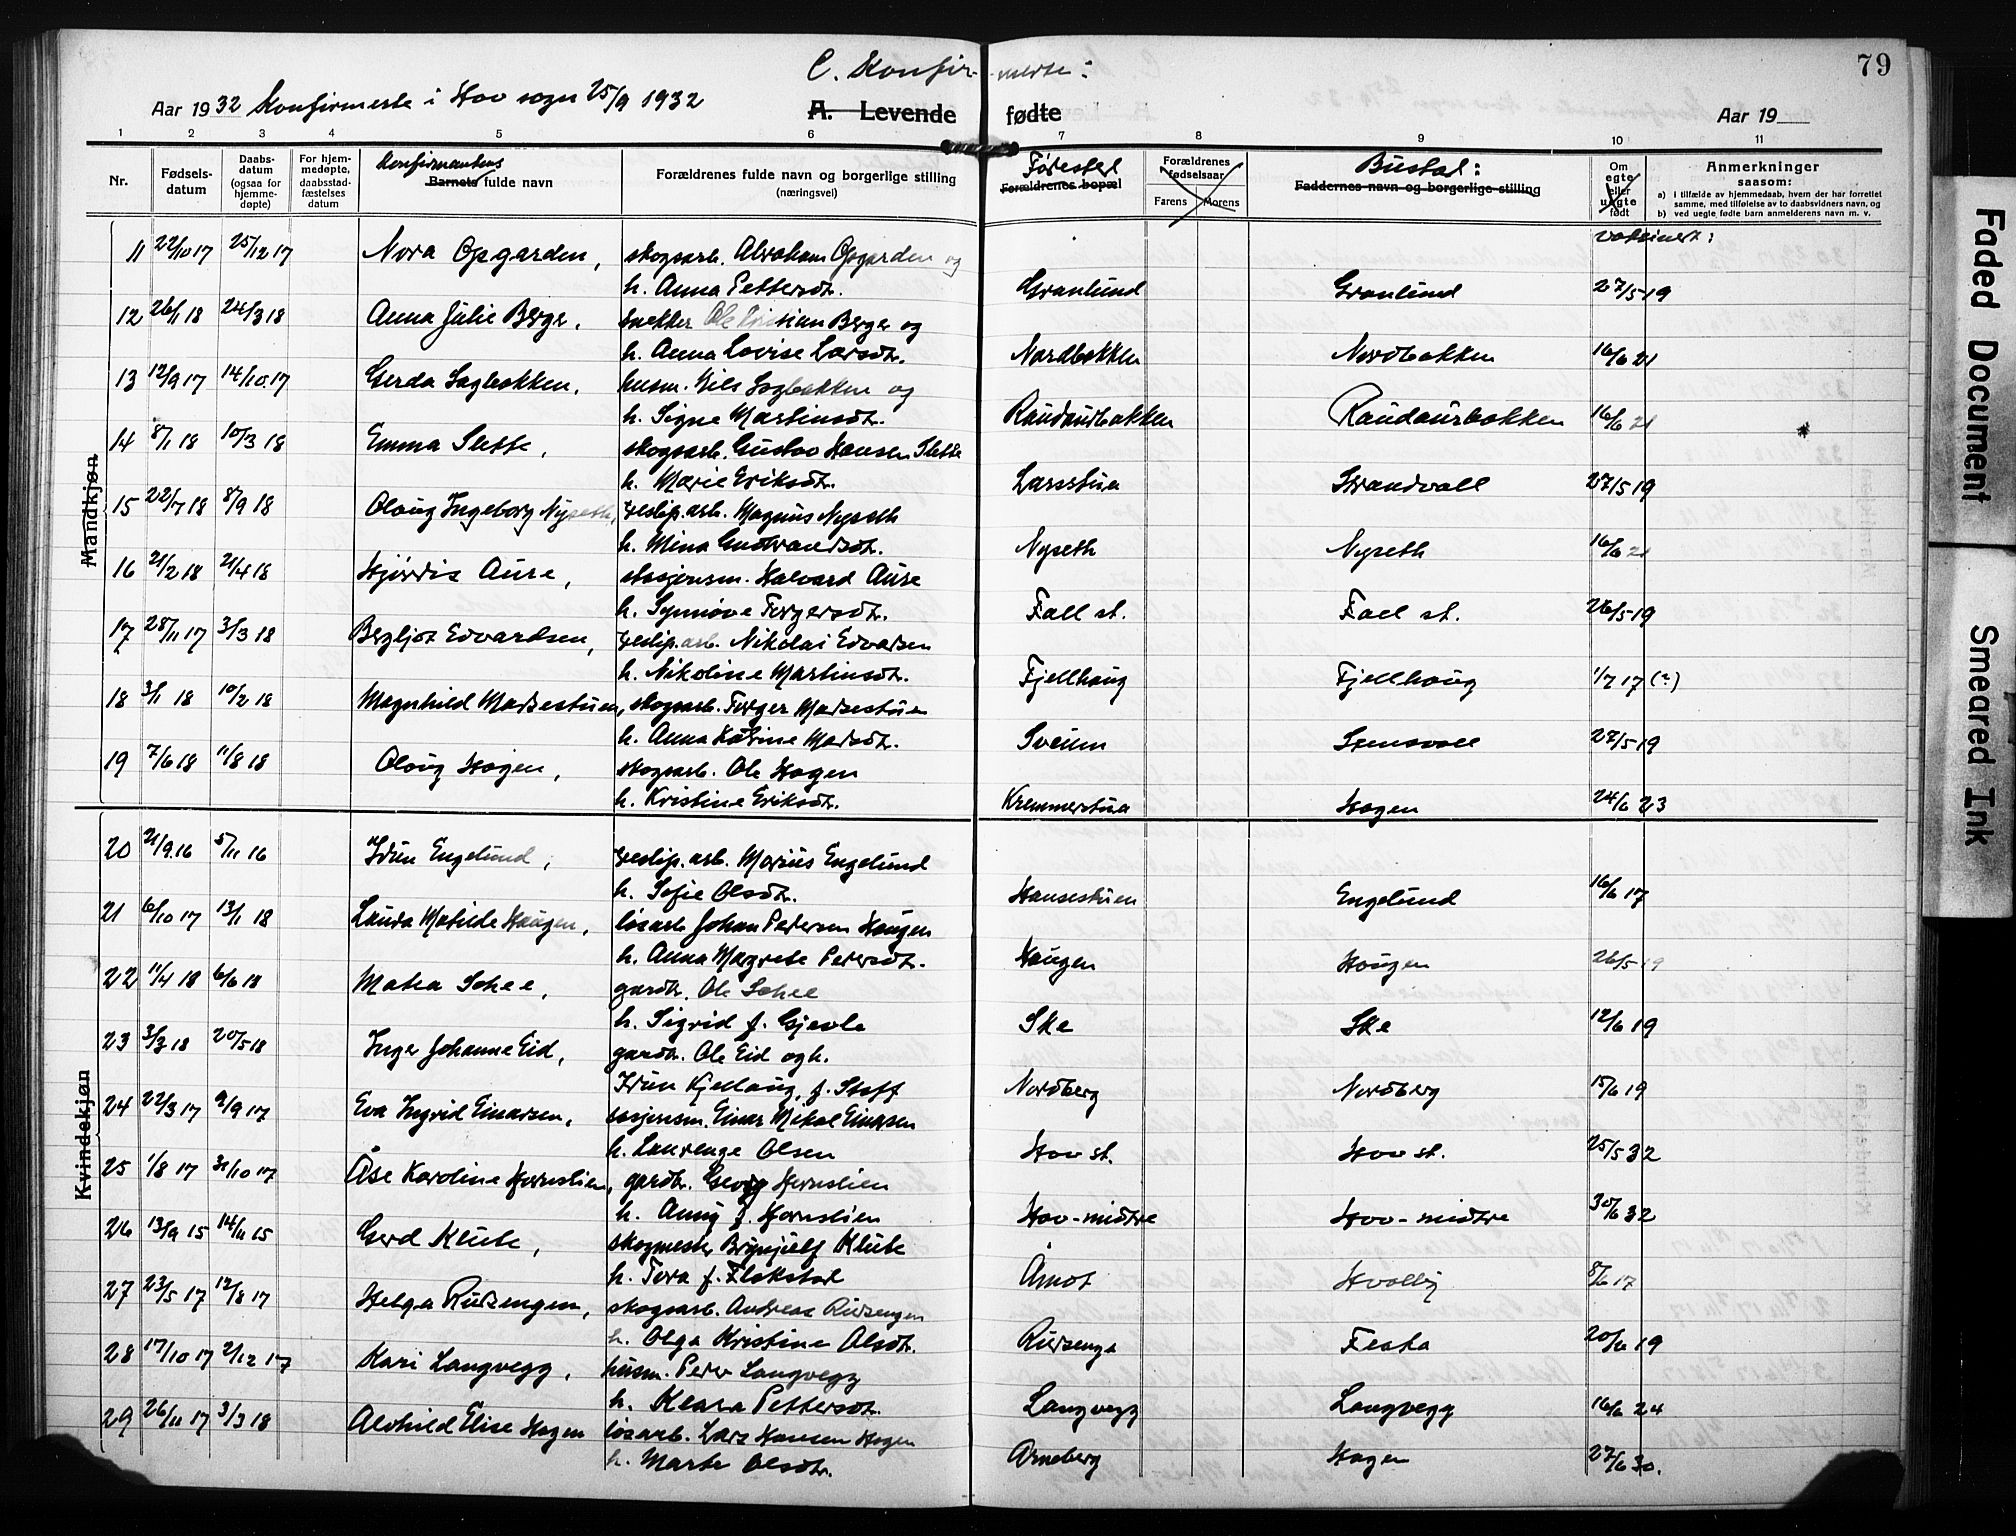 79
C. Konfirmerte:
Aar 1932 Konfirmerte i Hov sogn 25/9 1932
A. Levende fødte
Aar 19
1 2 3 4 5 6 7 8 9 10 11
Nr. Fødselsdatum Daabsdatum (ogsaa for hjemmedøpte) For hjemmedøpte, daabsstadfæstelses datum Konfirmantens Barnets fulde navn Forældrenes fulde navn og borgerlige stilling (næringsvei) Fødested Forældrenes bopæl Forældrenes fødselsaar Farens Morens Bustad: Faddernes navn og borgerlige stilling Om egte eller uegte født Anmerkninger saasom: a) i tilfælde av hjemmedaab, hvem der har forrettet samme, med tilføielse av to daabsvidners navn, og b) ved uegte fødte barn anmelderens navn m. v.
Vaksinert:
Mandkjøn
11 22/10 17 25/12 17 Nora Opgarden, skogsarb. Abraham Opgarden og
h. Anna Pettersdtr. Granlund Granlund 27/5 19
12 26/1 18 24/3 18 Anna Julie Berge, snekker Ole Kristian Berge og
h. Anna Lovise Larsdtr. Nordbakken Nordbakken 16/6 21
13 12/9 17 14/10 17 Gerda Sagbakken, husm. Nils Sagbakken og
h. Signe Martinsdtr. Raudaurbakken Raudaurbakken 16/6 21
14 8/1 18 10/3 18 Emma Slette, skogsarb. Gustav Hansen Slette
h. Marie Eriksdtr. Larsstua Strandvall 27/5 19
15 22/7 18 8/9 18 Olaug Ingeborg Nyseth, treslip.arb. Magnus Nyseth
h. Mina Gudbrandsdtr. Nyseth Nyseth 16/6 21
16 21/2 18 21/4 18 Hjørdis Aure, stasjonsm. Halvard Aure
h. Synnøve Torgersdtr. Fall st. Fall st. 26/5 19
17 28/11 17 3/3 18 Bergljot Edvardsen, treslip.arb. Nikolai Edvardsen
h. Nikoline Martinsdtr. Fjellhaug Fjellhaug 1/7 17 (?)
18 3/1 18 10/2 18 Magnhild Madsestuen, skogsarb. Torger Madsestuen
h. Anna Katrine Madsdtr. Sveum Stensvoll 27/5 19
19 7/6 18 11/8 18 Olaug Hagen, skogsarb. Ole Hagen
h. Kristine Eriksdtr. Kremmerstua Hagen 24/6 23
Kvindekjøn
20 21/9 16 5/11 16 Idun Engelund, treslip.arb. Marius Engelund
h. Sofie Olsdtr. Hansestuen Engelund 16/6 17
21 6/10 17 13/1 18 Laura Matilde Haugen, løsarb. Johan Petersen Haugen
h. Anna Margrete Petersdtr. Haugen Haugen 26/5 19
22 11/4 18 6/6 18 Matea Schee, gardbr. Ole Schee
h. Sigrid f. Gjevle Ske Ske 12/6 19
23 3/3 18 20/5 18 Inger Johanne Eid, gardbr. Ole Eid og h.
Idun Kjellaug, f. Stoff Nordberg Nordberg 15/6 19
24 22/3 17 9/9 17 Eva Ingrid Einarsen, stasjonsm. Einar Mikal Einarsen
h. Laurenze Olsen Hov st. Hov st. 25/5 32
25 1/8 17 31/10 17 Åse Karoline Hornslien, gardbr. Georg Hornslien
h. Anny f. Hornslien Hov-midtre Hov-midtre 30/6 32
26 13/9 15 14/11 15 Gerd Klute, skogmester Brynjulf Klute
h. Tora f. Flakstad Åmot Hvalby 8/6 17
27 23/5 17 12/8 17 Helga Rudsengen, skogsarb. Andreas Rudsengen
h. Olga Kristine Olsdtr. Rudsenga Festa 20/6 19
28 17/10 17 2/12 17 Kari Langvegg, husm. Peder Langvegg
h. Klara Pettersdtr. Langvegg Langvegg 16/6 24
29 26/11 17 3/3 18 Alvhild Elise Hagen løsarb. Lars Hansen Hagen
h. Marte Olsdtr. Arneberg Hagen 27/6 30.
Faded Document
Smeared Ink